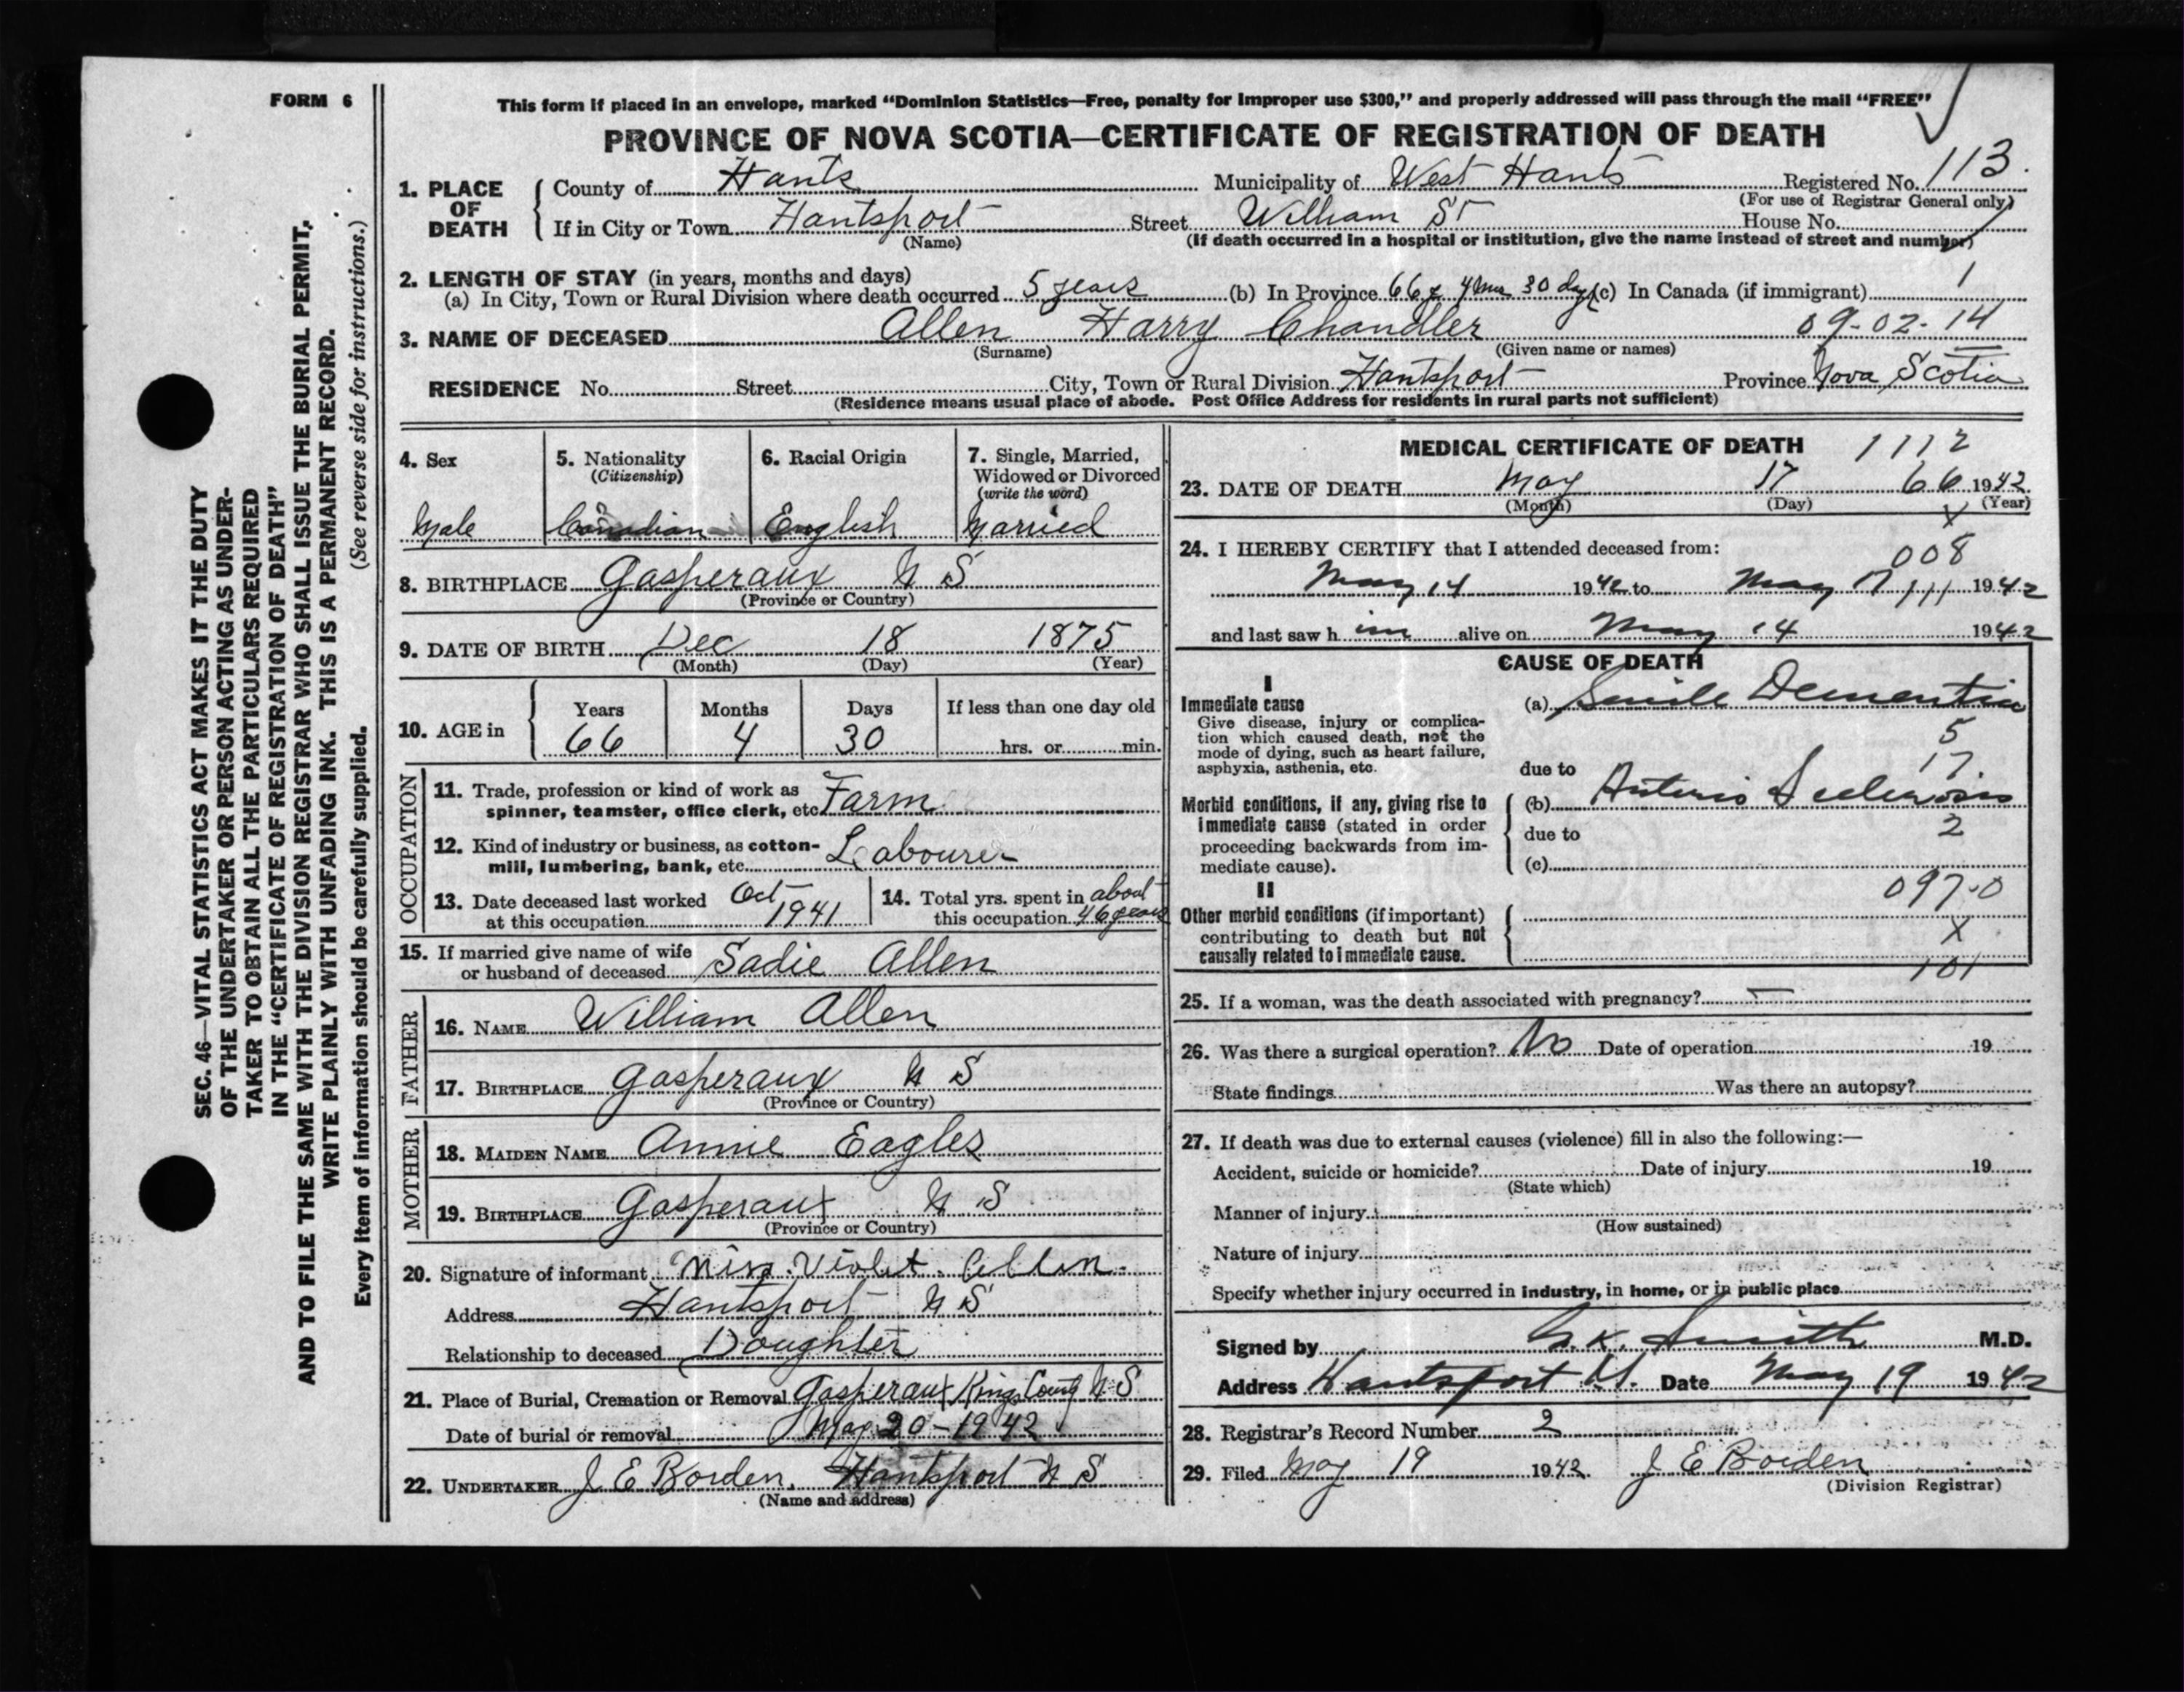 FORM 6
This form if placed in an envelope, marked “Dominion Statistics—Free, penalty for improper use $300,” and properly addressed will pass through the mail “FREE”
PROVINCE OF NOVA SCOTIA—CERTIFICATE OF REGISTRATION OF DEATH
1. PLACE OF DEATH County of Hants Municipality of West Hants Registered No. 113.
(For use of Registrar General only)
If in City or Town Hantsport Street William St House No.
(Name) (If death occurred in a hospital or institution, give the name instead of street and number)
2. LENGTH OF STAY (in years, months and days)
(a) In City, Town or Rural Division where death occurred 5 years (b) In Province 66 y 4 ms 30 dy (c) In Canada (if immigrant) 1
3. NAME OF DECEASED Allen Harry Chandler 09-02-14
(Surname) (Given name or names)
RESIDENCE No. Street City, Town or Rural Division Hantsport Province Nova Scotia
(Residence means usual place of abode. Post Office Address for residents in rural parts not sufficient)
4. Sex 5. Nationality (Citizenship) 6. Racial Origin 7. Single, Married, Widowed or Divorced (write the word)
Male Canadian English Married
8. BIRTHPLACE Gasperaux N S
(Province or Country)
9. DATE OF BIRTH Dec 18 1875
(Month) (Day) (Year)
10. AGE in Years Months Days If less than one day old
66 4 30 hrs. or min.
OCCUPATION
11. Trade, profession or kind of work as spinner, teamster, office clerk, etc. Farm
12. Kind of industry or business, as cotton-mill, lumbering, bank, etc. Labourer
13. Date deceased last worked at this occupation Oct 1941
14. Total yrs. spent in this occupation about 46 years
15. If married give name of wife or husband of deceased Sadie Allen
FATHER
16. NAME William Allen
17. BIRTHPLACE Gasperaux N S
(Province or Country)
MOTHER
18. MAIDEN NAME Annie Eagles
19. BIRTHPLACE Gasperaux N S
(Province or Country)
20. Signature of informant Miss. Violet. Allen.
Address Hantsport N S
Relationship to deceased Doughter
21. Place of Burial, Cremation or Removal Gasperaux Kings County N S
Date of burial or removal May 20 - 1942
22. UNDERTAKER J E Borden, Hantsport N S
(Name and address)
MEDICAL CERTIFICATE OF DEATH 1112
23. DATE OF DEATH May 17 66 1942
(Month) (Day) (Year)
X
24. I HEREBY CERTIFY that I attended deceased from: 008
May 14 1942 to May 17 111 1942
and last saw h im alive on May 14 1942
CAUSE OF DEATH
I
Immediate cause
Give disease, injury or complication which caused death, not the mode of dying, such as heart failure, asphyxia, asthenia, etc.
(a) Senile Dementia
5
17
due to
Morbid conditions, if any, giving rise to immediate cause (stated in order proceeding backwards from immediate cause).
(b) Arterio Sclerosis
due to 2
(c)
097-0
II
Other morbid conditions (if important) contributing to death but not causally related to immediate cause.
X
101
25. If a woman, was the death associated with pregnancy? —
26. Was there a surgical operation? No Date of operation 19
State findings Was there an autopsy?
27. If death was due to external causes (violence) fill in also the following:—
Accident, suicide or homicide? Date of injury 19
(State which)
Manner of injury
(How sustained)
Nature of injury
Specify whether injury occurred in industry, in home, or in public place
Signed by G.K. Smith M.D.
Address Hantsport Date May 19 1942
28. Registrar's Record Number 2
29. Filed May 19 1942 J E Borden
(Division Registrar)
SEC. 46—VITAL STATISTICS ACT MAKES IT THE DUTY
OF THE UNDERTAKER OR PERSON ACTING AS UNDER-
TAKER TO OBTAIN ALL THE PARTICULARS REQUIRED
IN THE “CERTIFICATE OF REGISTRATION OF DEATH”
AND TO FILE THE SAME WITH THE DIVISION REGISTRAR WHO SHALL ISSUE THE BURIAL PERMIT.
WRITE PLAINLY WITH UNFADING INK. THIS IS A PERMANENT RECORD.
Every item of information should be carefully supplied. (See reverse side for instructions.)